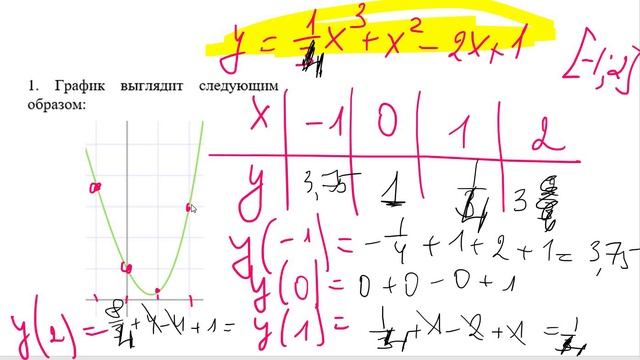 y = 1/4 x³ + x² - 2x + 1
[-1; 2]
1. График выглядит следующим
образом:
x | -1 | 0 | 1 | 2
y | 3,75 | 1 | 1/4 | 3
y(-1) = -1/4 + 1 + 2 + 1 = 3,75
y(0) = 0 + 0 - 0 + 1
y(2) = 8/4 + 4 - 4 + 1 =
y(1) = 1/4 + 1 - 2 + 1 = 1/4